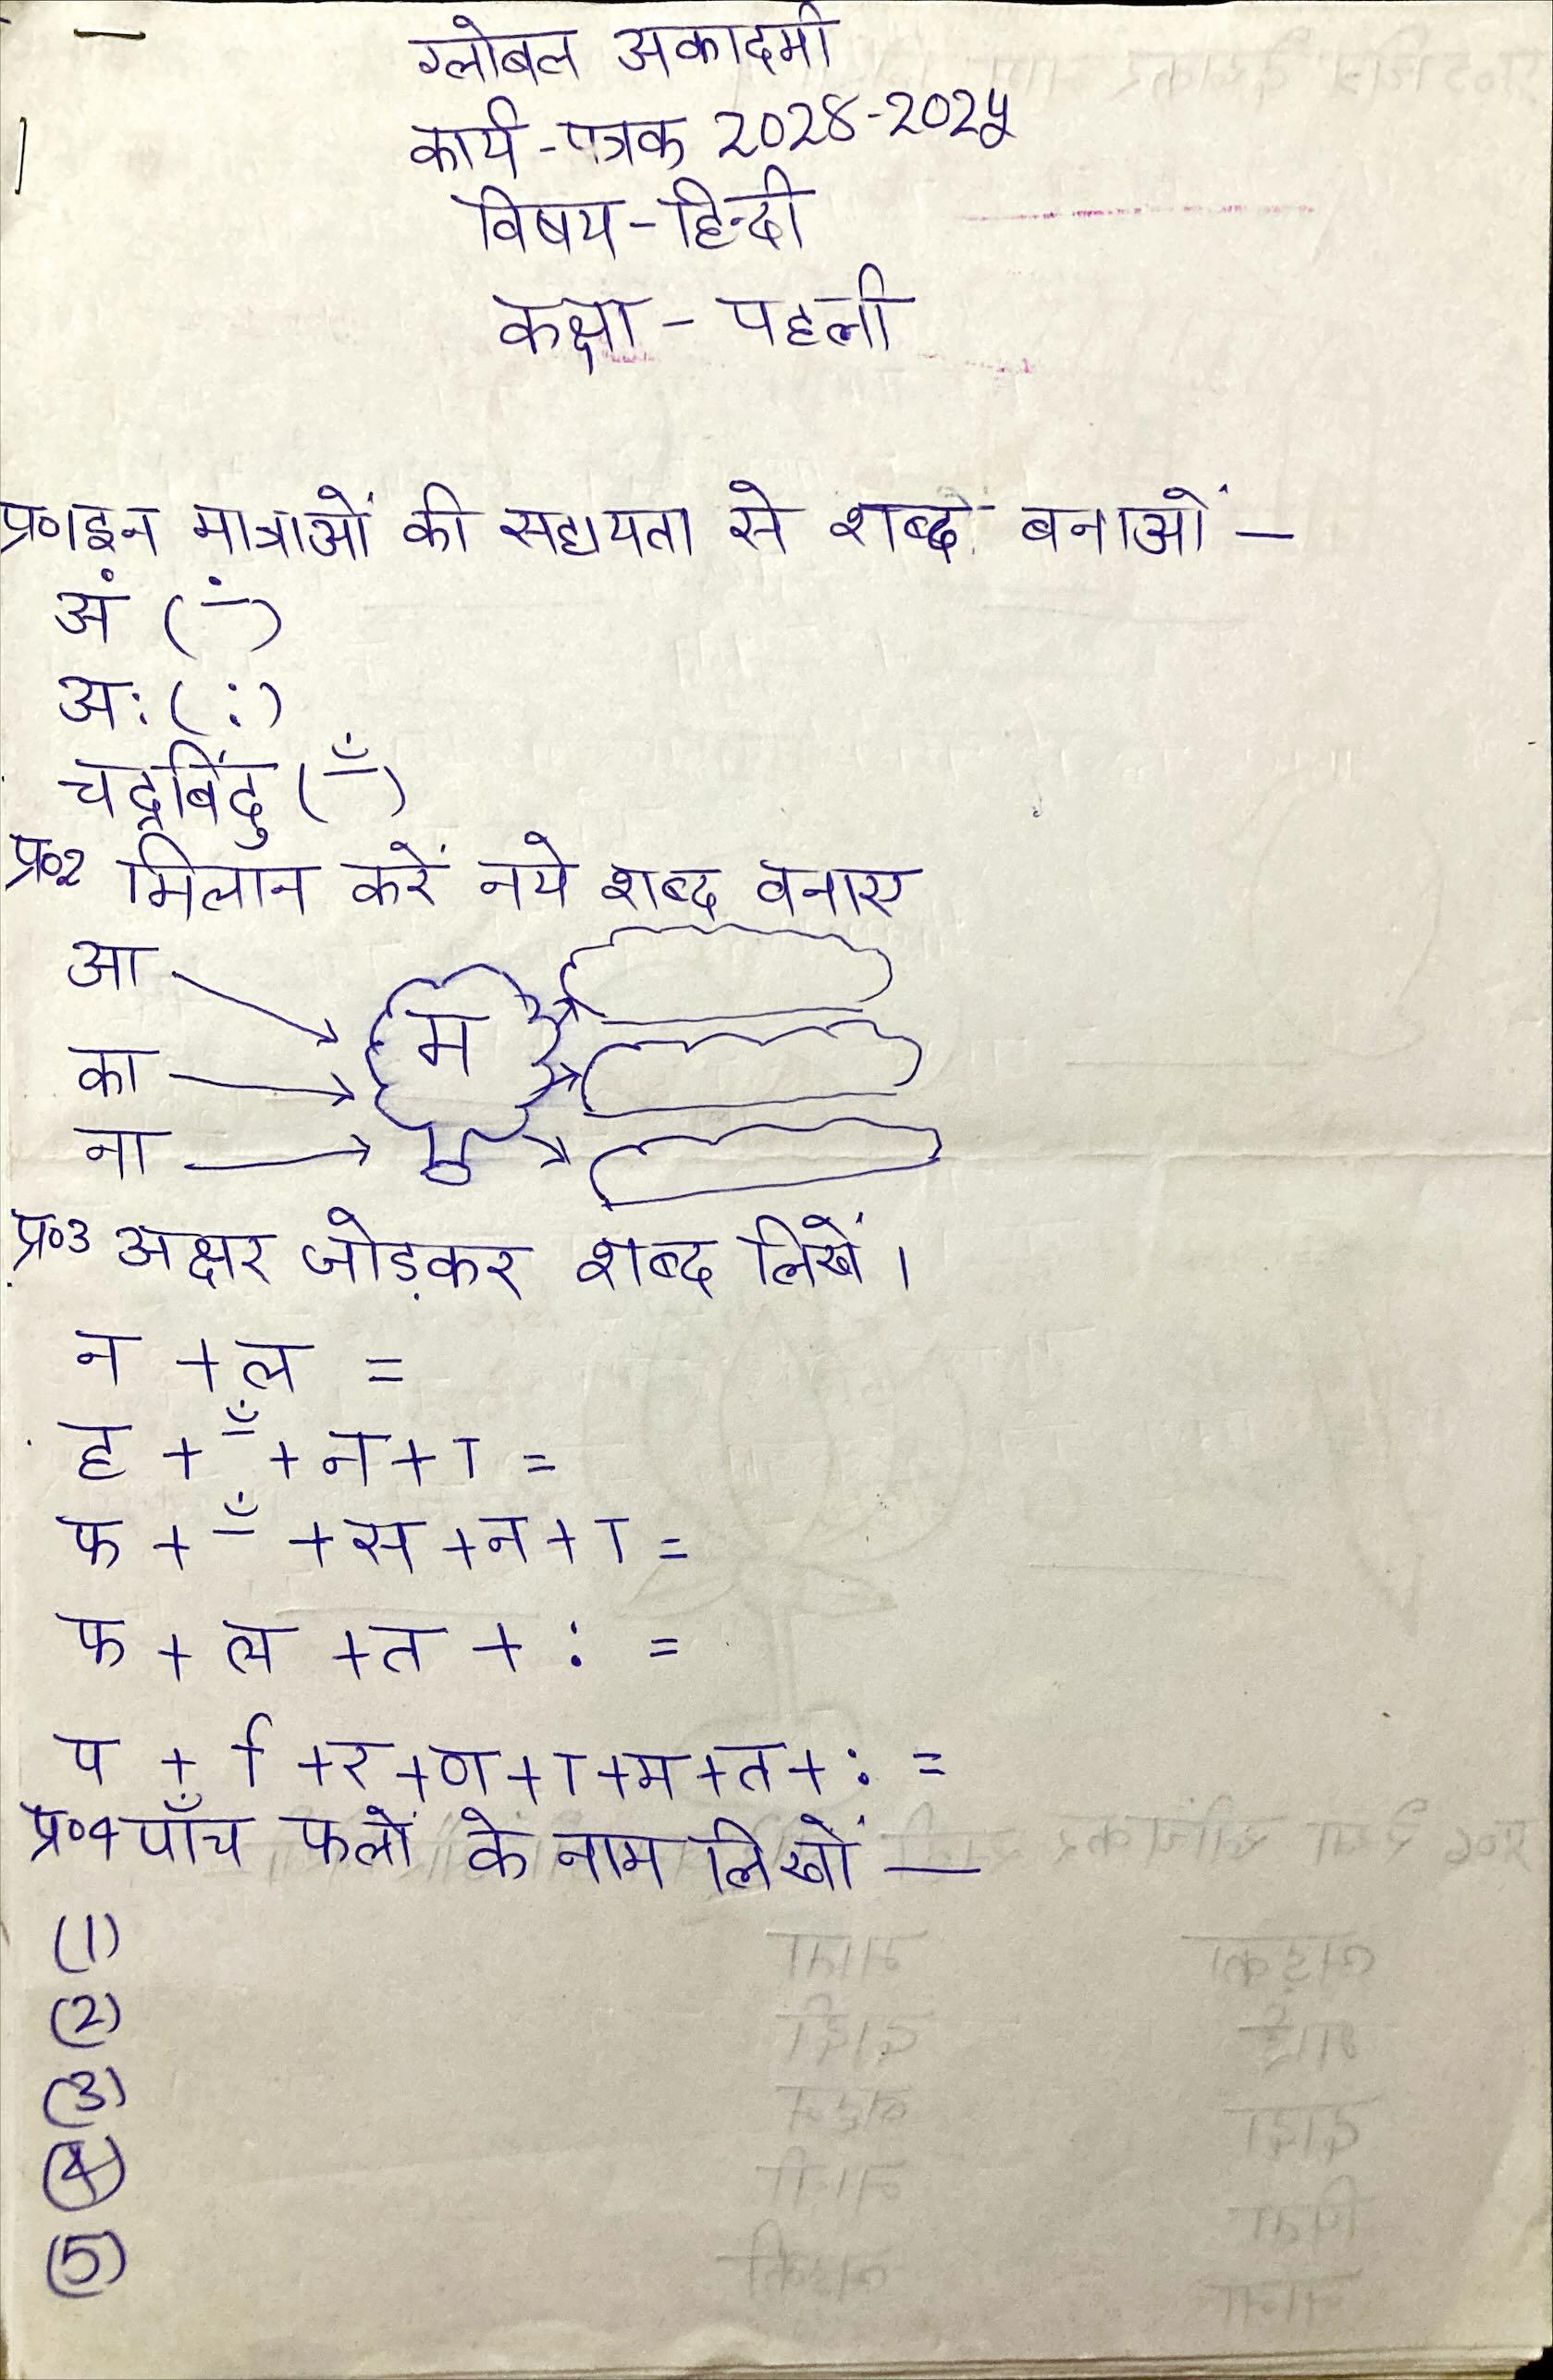 ग्लोबल अकादमी
कार्य-पत्रक 2028-2025
विषय-हिन्दी
कक्षा - पहली
प्र०1 इन मात्राओं की सहायता से शब्द बनाओं -
अं ( ं )
अः ( : )
चद्रबिंदु ( ँ )
प्र०2 मिलान करें नये शब्द बनाए
आ
का म
ना
प्र०3 अक्षर जोड़कर शब्द लिखें।
न + ल =
ह + ँ + न + ा =
फ + ँ + स + न + ा =
फ + ल + त + : =
प + ि + र + ण + ा + म + त + : =
प्र०4 पाँच फलों के नाम लिखों -
(1)
(2)
(3)
(4)
(5)